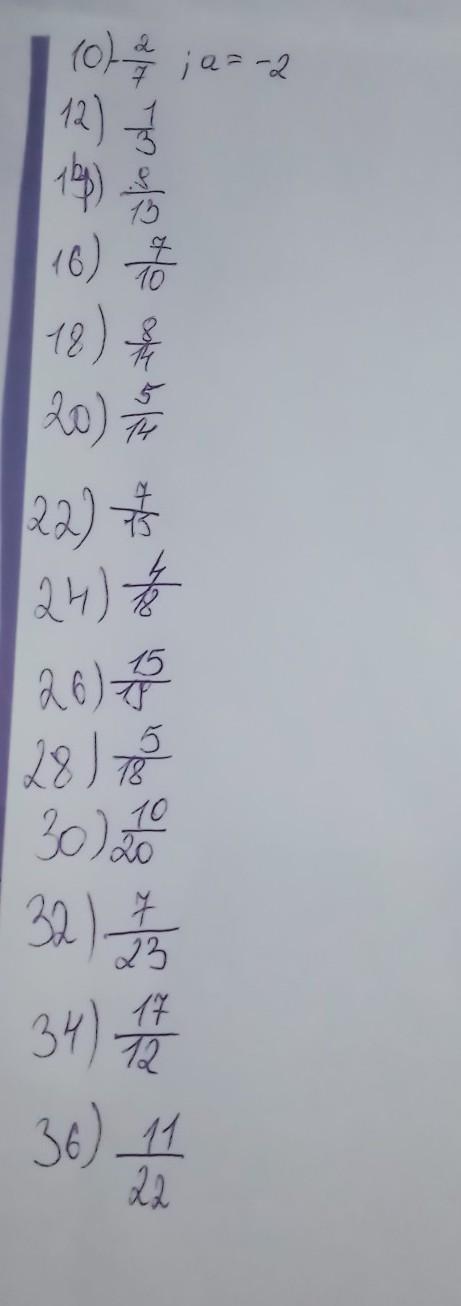 10) -2/7 ; a = -2
12) 1/3
14) 8/13
16) 7/10
18) 8/14
20) 5/14
22) 7/15
24) 4/18
26) 15/19
28) 5/18
30) 10/20
32) 7/23
34) 17/12
36) 11/22